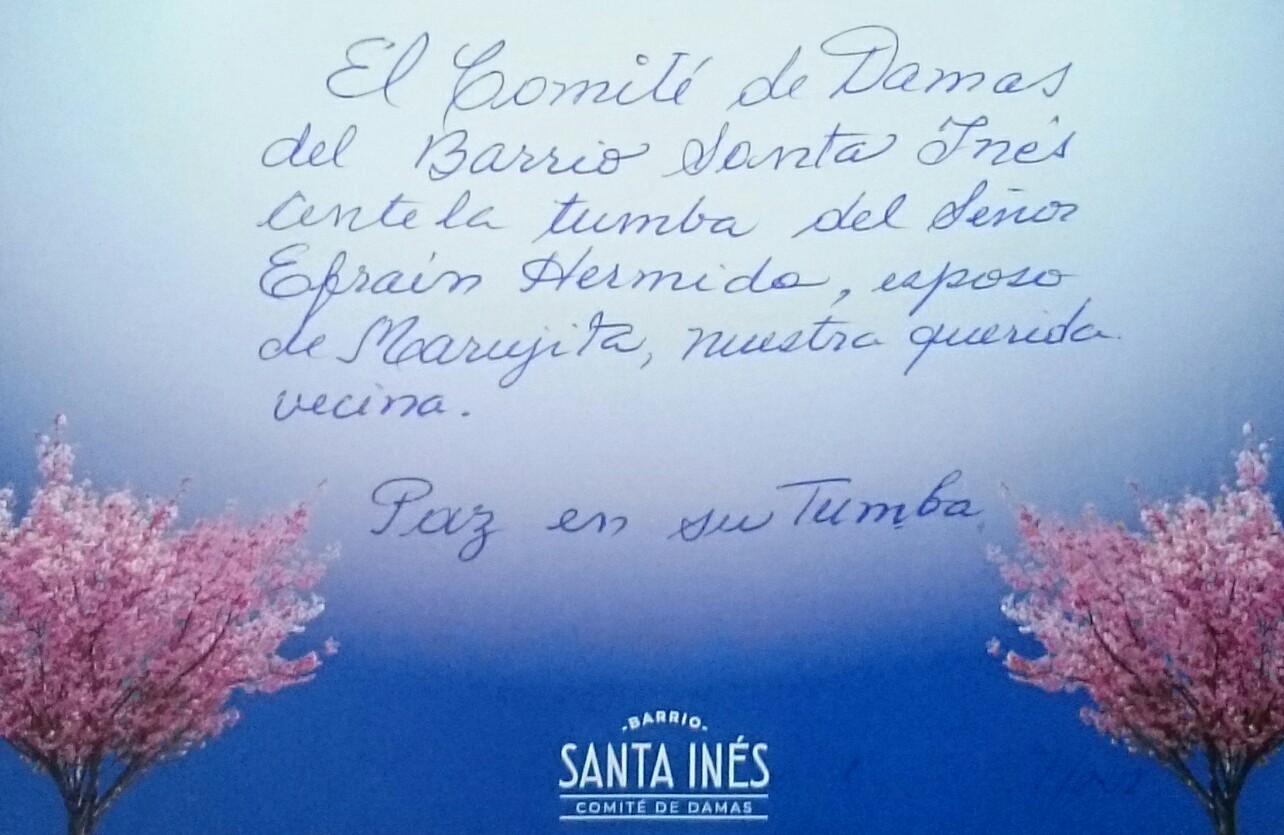 El Comité de Damas
del Barrio Santa Inés
ante la tumba del Señor
Efraín Hermida, esposo
de Marujita, nuestra querida
vecina.
Paz en su Tumba.
-BARRIO-
SANTA INÉS
COMITÉ DE DAMAS